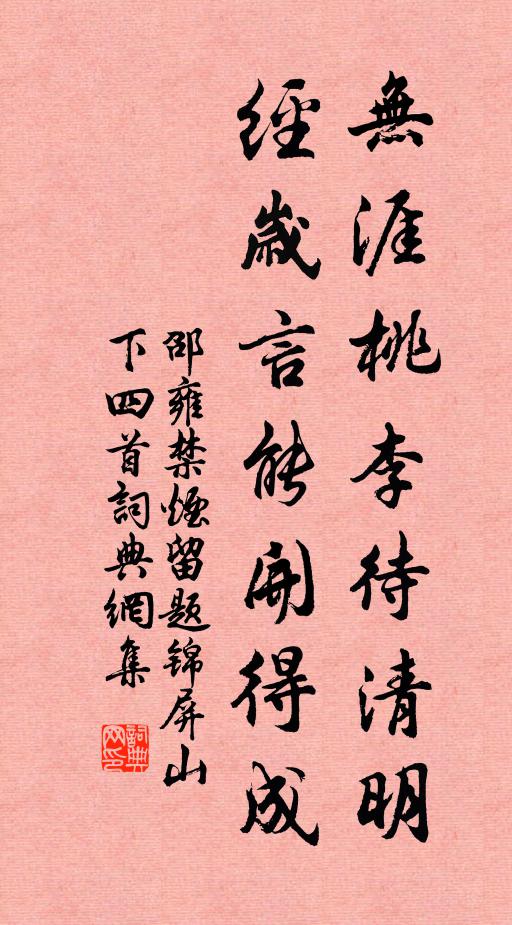 無涯桃李待清明
經歲言能開得成
邵雍禁煙留題锦屏山
下四首詞典網集
詞典
网印